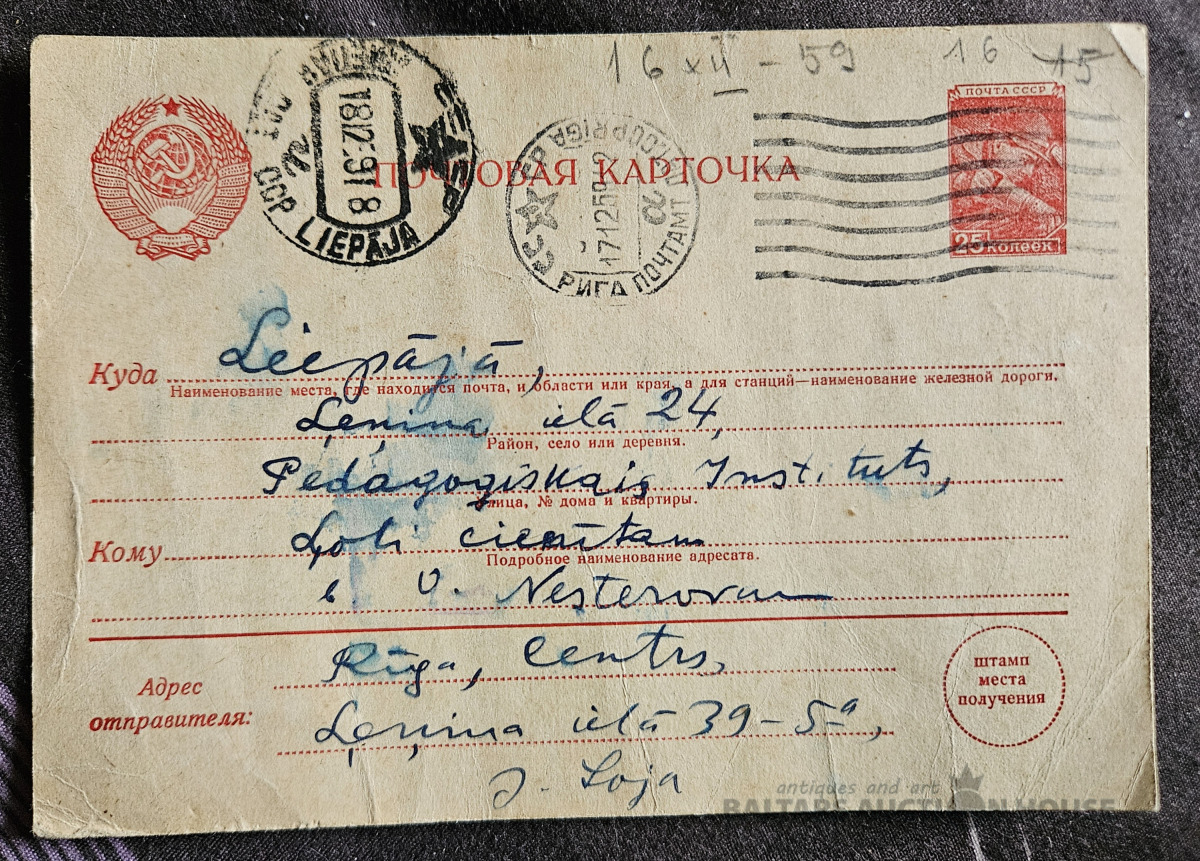 16 XII - 59 16 15
ПОЧТА СССР
ПОЧТОВАЯ КАРТОЧКА
25 КОПЕЕК
ССР LIEPĀJA
181259 18
СССР РИГА ПОЧТАМТ
171259
Куда Liepājā,
Наименование места, где находится почта, и области или края, а для станций—наименование железной дороги.
Ļeņina ielā 24,
Район, село или деревня.
Pedagoģiskais Institūts,
Улица, № дома и квартиры.
Кому Ļoti cienītam
Подробное наименование адресата.
b. O. Nesterovam
Адрес отправителя:
Rīga, Centrs,
Ļeņina ielā 39-5a,
J. Loja
штамп
места
получения
antiques and art
BALTARS AUCTION HOUSE